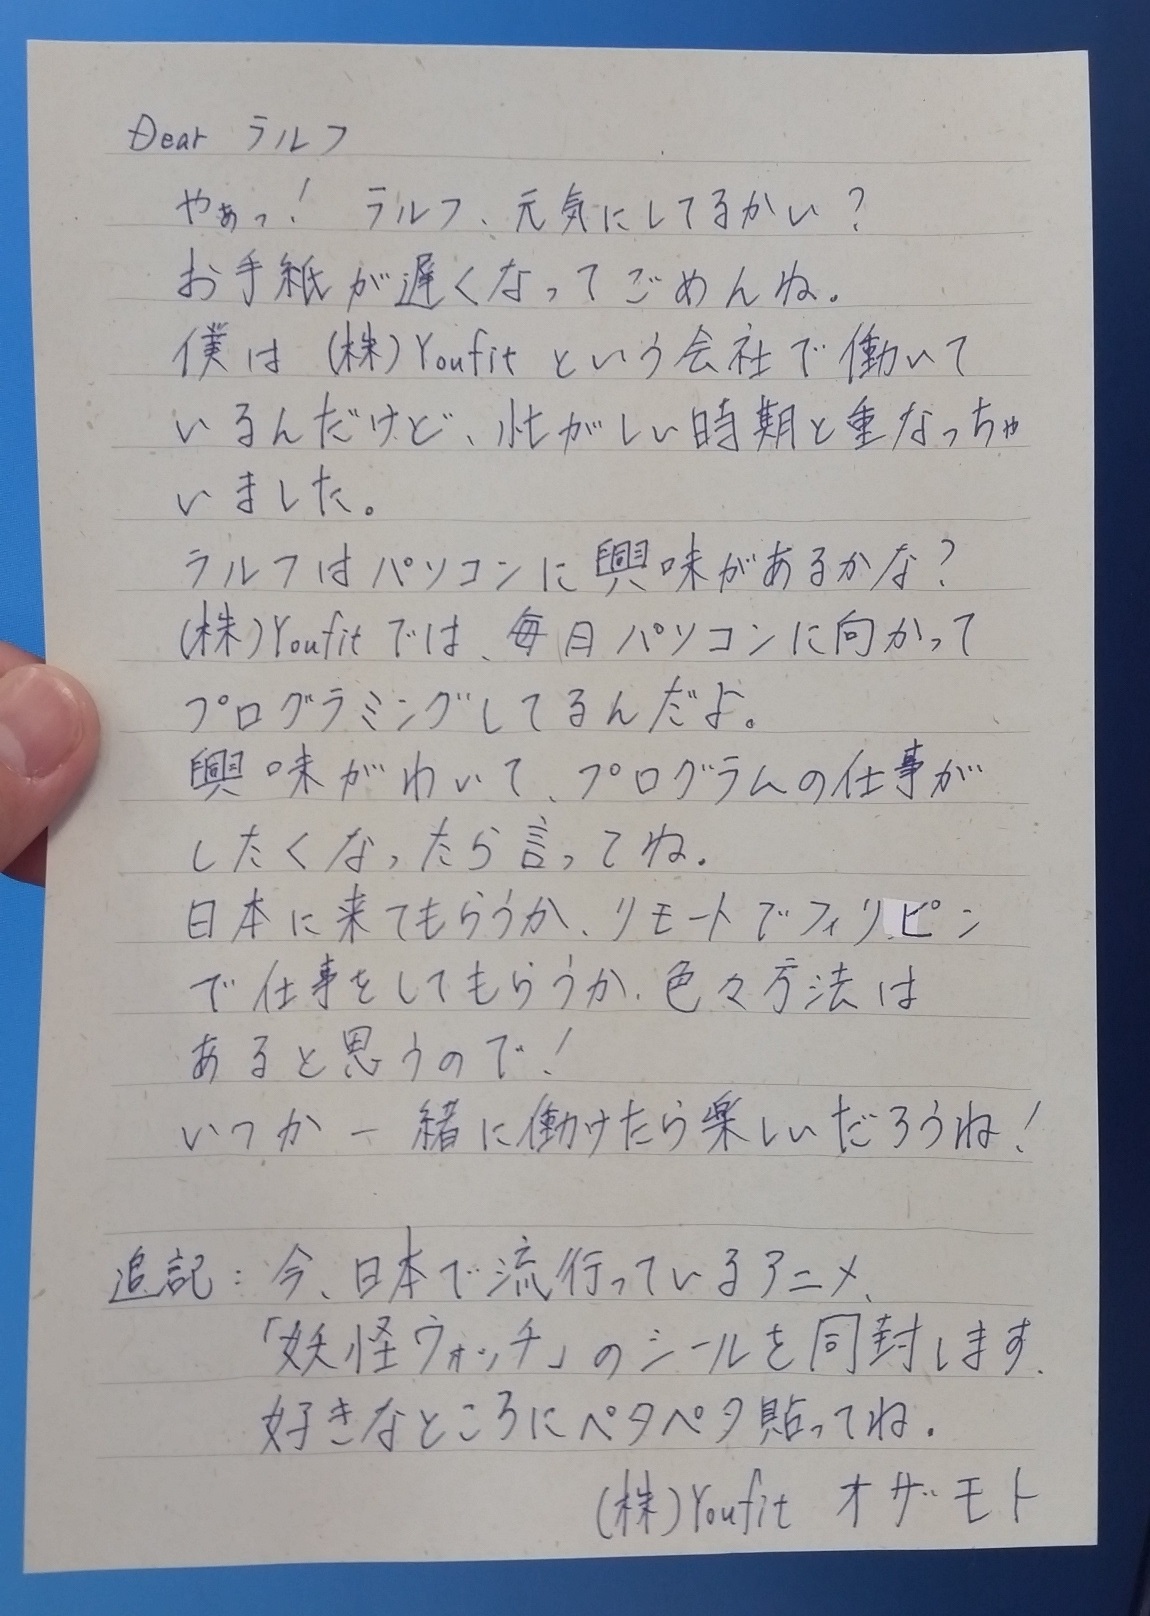 Dear ラルフ
やぁっ! ラルフ、元気にしてるかい?
お手紙が遅くなってごめんね。
僕は (株)Youfit という会社で働いて
いるんだけど、忙がしい時期と重なっちゃ
いました。
ラルフはパソコンに興味があるかな?
(株)Youfitでは、毎日パソコンに向かって
プログラミングしてるんだよ。
興味がわいて、プログラムの仕事が
したくなったら言ってね。
日本に来てもらうか、リモートでフィリピン
で仕事をしてもらうか、色々方法は
あると思うので!
いつか一緒に働けたら楽しいだろうね!
追記:今、日本で流行っているアニメ、
「妖怪ウォッチ」のシールを同封します。
好きなところにペタペタ貼ってね。
(株)Youfit オザモト